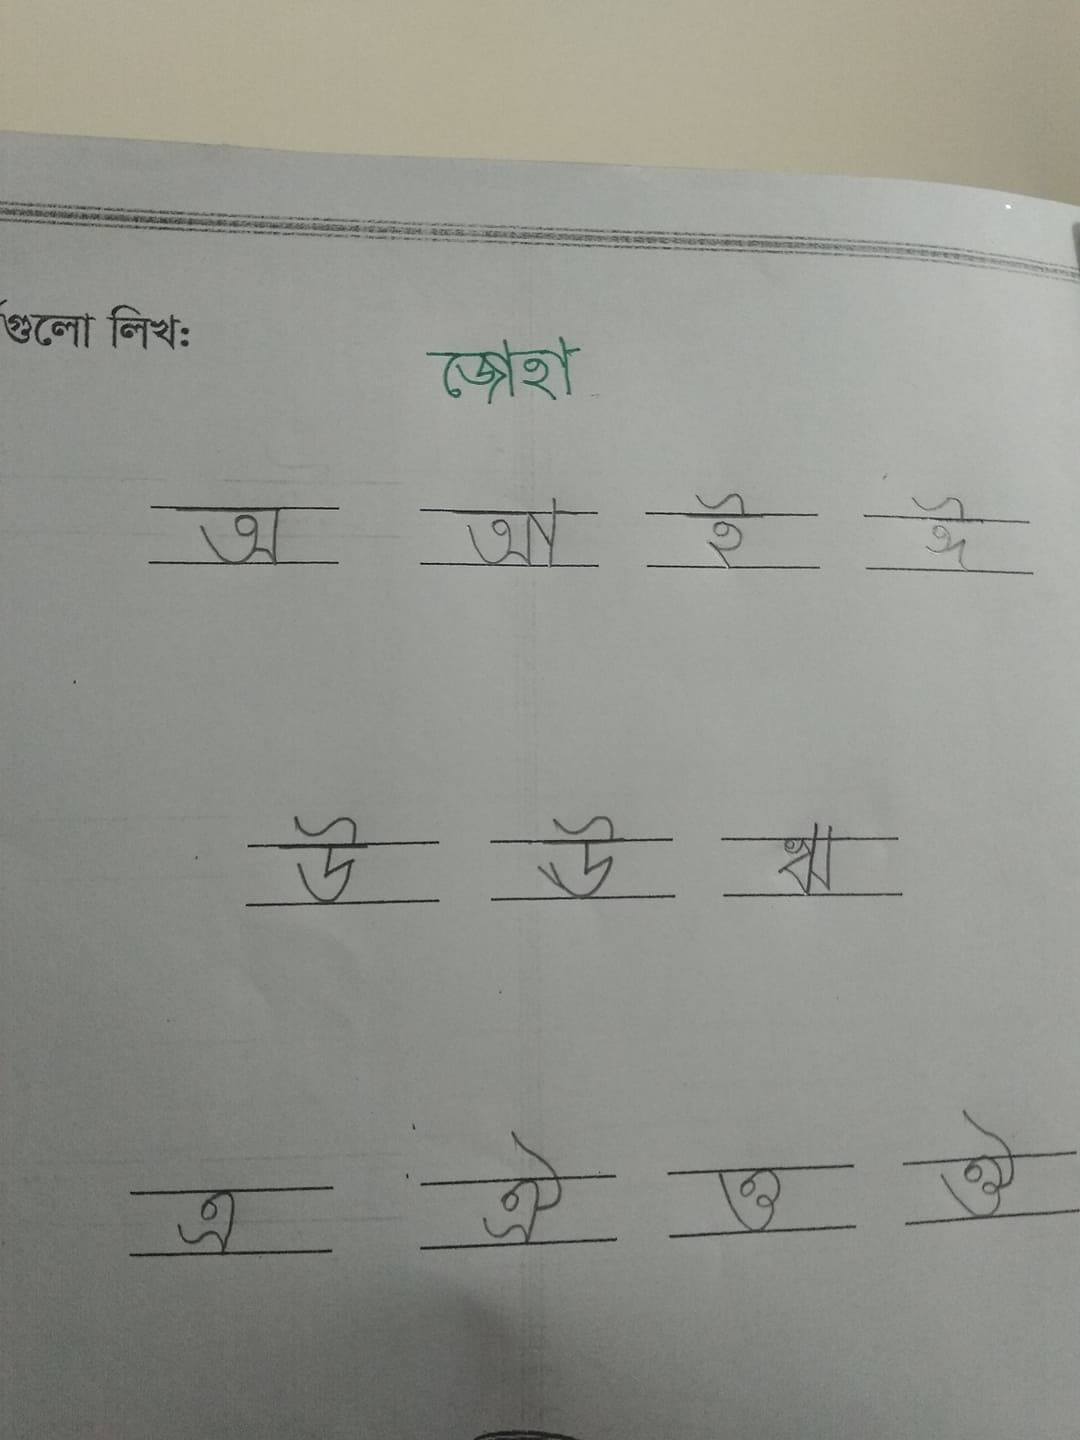 গুলো লিখ:
জোহা
অ আ ই ঈ
উ ঊ ঋ
এ ঐ ও ঔ